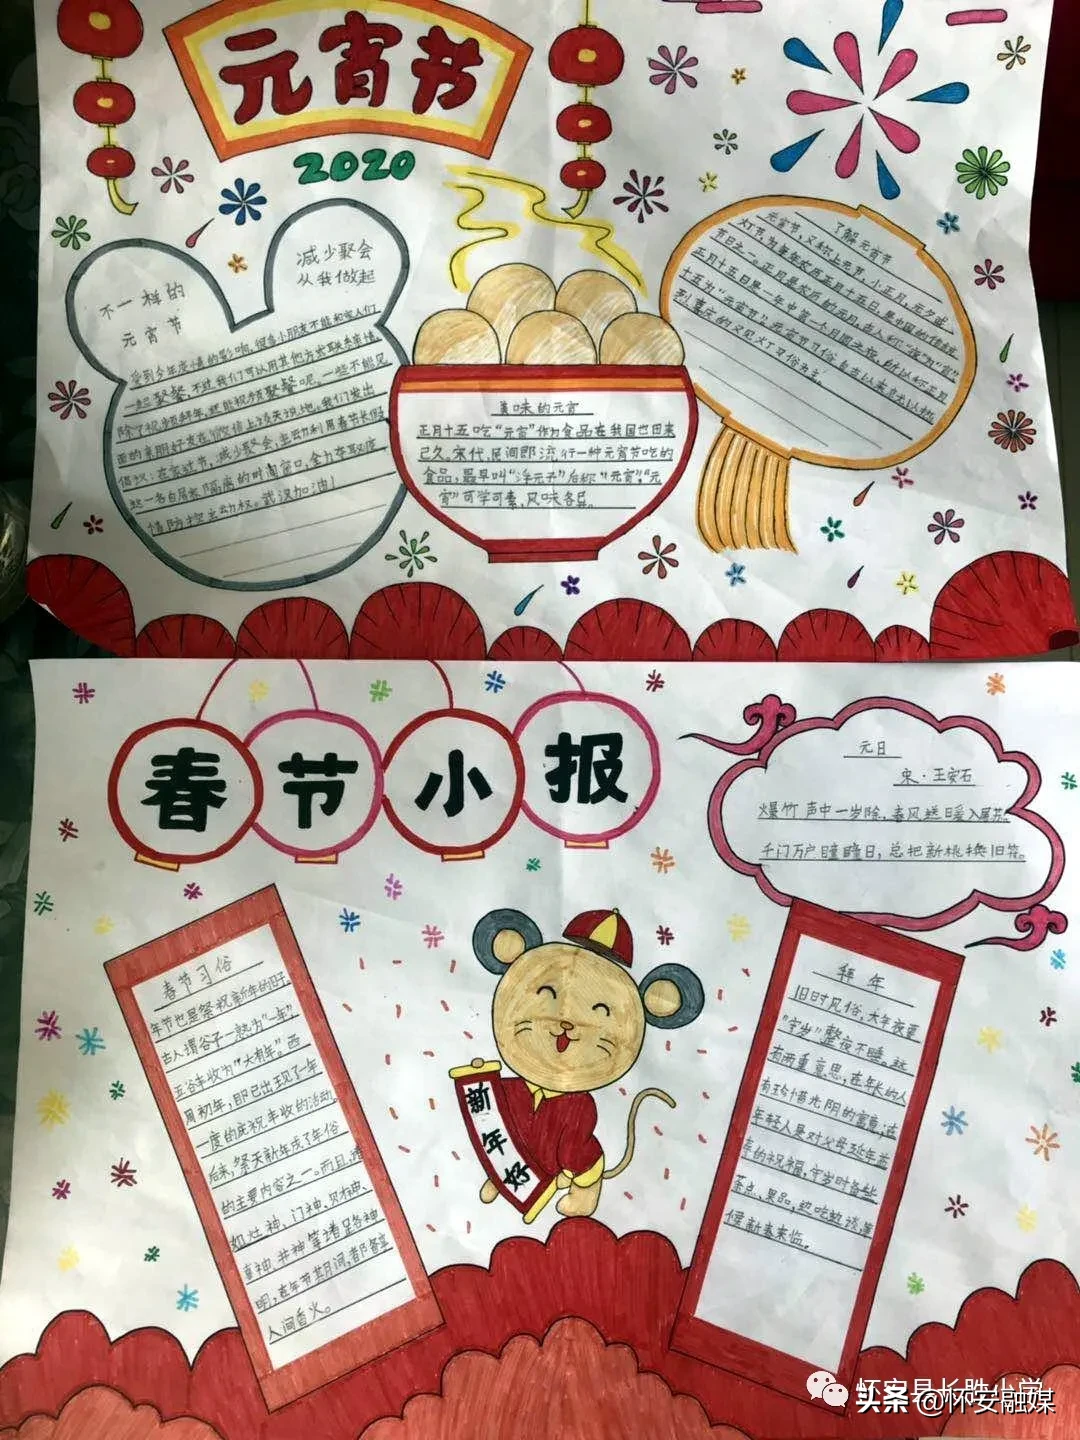 元宵节
2020
不一样的
元宵节
减少聚会
从我做起
受到今年疫情的影响,很多小朋友不能和家人们
一起聚餐,不过,我们可以用其他方式联系亲情
除了视频拜年,还能视频聚餐呢。一些不能见
面的亲朋好友在微信上谈天说地。我们发出
倡议:在宵过节,减少聚会,主动利用春节长假
这一名自居家隔离的时间窗口,全力夺取疫
情防控主动权。武汉加油!
美味的元宵
正月十五吃“元宵”作为食品在我国也由来
已久,宋代,民间即流行一种元宵节吃的
食品,最早叫“浮元子”后称“元宵”,“元
宵”可学可素,风味各异。
了解元宵节
元宵节,又称上元节,小正月,元夕或
灯节,为每年农历正月十五日,是中国的传统
节日之一。正月是农历的元月,古人称“夜”为“宵”
正月十五日是一年中第一个月圆之夜,所以称正月
十五为“元宵节”元宵节习俗自古以来就以热
烈喜庆的观灯习俗为主。
春节小报
元日
宋·王安石
爆竹声中一岁除,春风送暖入屠苏。
千门万户曈曈日,总把新桃换旧符。
春节习俗
年节也是祭祝新年的日子。
古人谓谷子一熟为“一年”
五谷丰收为“大有年”。西
周初年,即已出现了一年
一度的庆祝丰收的活动。
后来,祭天祈年成了年俗
的主要内容之一。而且,诸
如灶神、门神、财神、
喜神、井神等诸路各神
明,在年节期间,都备享
人间香火。
新年好
拜年
旧时风俗,大年夜要
“守岁”,整夜不睡。这
有两重意思,在年长的人
有珍惜光阴的寓意,在
年轻人是对父母延年益
寿的祝福,守岁时备些
茶点、果品,边吃边谈,等
候新春来临。
怀安县长胜小学
头条@怀安融媒